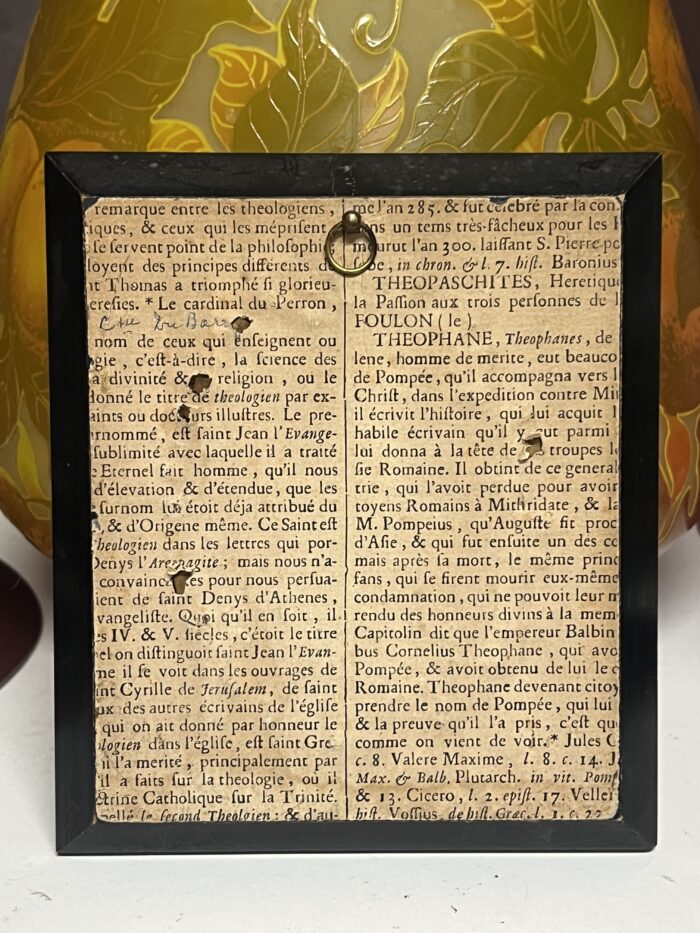 remarque entre les theologiens,
iques, & ceux qui les méprisent
se servent point de la philosophie
loyent des principes différents
nt Thomas a triomphé si glorieu-
eresies. * Le cardinal du Perron,
nom de ceux qui enseignent ou
gie, c'est-à-dire, la science des
a divinité & religion, ou le
donné le titre de theologien par ex-
aints ou docteurs illustres. Le pre-
rnommé, est saint Jean l'Evange-
sublimité avec laquelle il a traité
Eternel fait homme, qu'il nous
d'élevation & d'étendue, que les
surnom lui étoit déja attribué du
, & d'Origene même. Ce Saint est
heologien dans les lettres qui por-
Denys l'Areopagite; mais nous n'a-
convainc es pour nous persua-
ient de saint Denys d'Athenes,
vangeliste. Quoi qu'il en soit, il
es IV. & V. siécles, c'étoit le titre
el on distinguoit saint Jean l'Evan-
me il se voit dans les ouvrages de
int Cyrille de Jerusalem, de saint
ux des autres écrivains de l'église
qui on ait donné par honneur le
ologien dans l'église, est saint Gre-
il l'a merité, principalement par
'il a faits sur la theologie, où il
ctrine Catholique sur la Trinité.
ellé le second Theologien: & d'au-
me l'an 285. & fut célebré par la con
ns un tems très-fâcheux pour les
mourut l'an 300. laissant S. Pierre
in chron. & l. 7. hist. Baronius
THEOPASCHITES, Heretiqu
la Passion aux trois personnes de
FOULON (le)
THEOPHANE, Theophanes, de
lene, homme de merite, eut beauco
de Pompée, qu'il accompagna vers l
Christ, dans l'expedition contre Mi
il écrivit l'histoire, qui lui acquit l
habile écrivain qu'il y eut parmi
lui donna à la tête de troupes l
sie Romaine. Il obtint de ce general
trie, qui l'avoit perdue pour avoir
toyens Romains à Mithridate, & la
M. Pompeius, qu'Auguste fit proc
d'Asie, & qui fut ensuite un des ce
mais après sa mort, le même princ
fans, qui se firent mourir eux-même
condamnation, qui ne pouvoit leur m
rendu des honneurs divins à la mem
Capitolin dit que l'empereur Balbin
bus Cornelius Theophane, qui avo
Pompée, & avoit obtenu de lui le c
Romaine. Theophane devenant citoy
prendre le nom de Pompée, qui lui
& la preuve qu'il l'a pris, c'est qu
comme on vient de voir.* Jules C
c. 8. Valere Maxime, l. 8. c. 14.
Max. & Balb. Plutarch. in vit. Pomp
& 13. Cicero, l. 2. epist. 17. Vellei
hist. Vossius, de hist. Græc. l. 1. c. 22